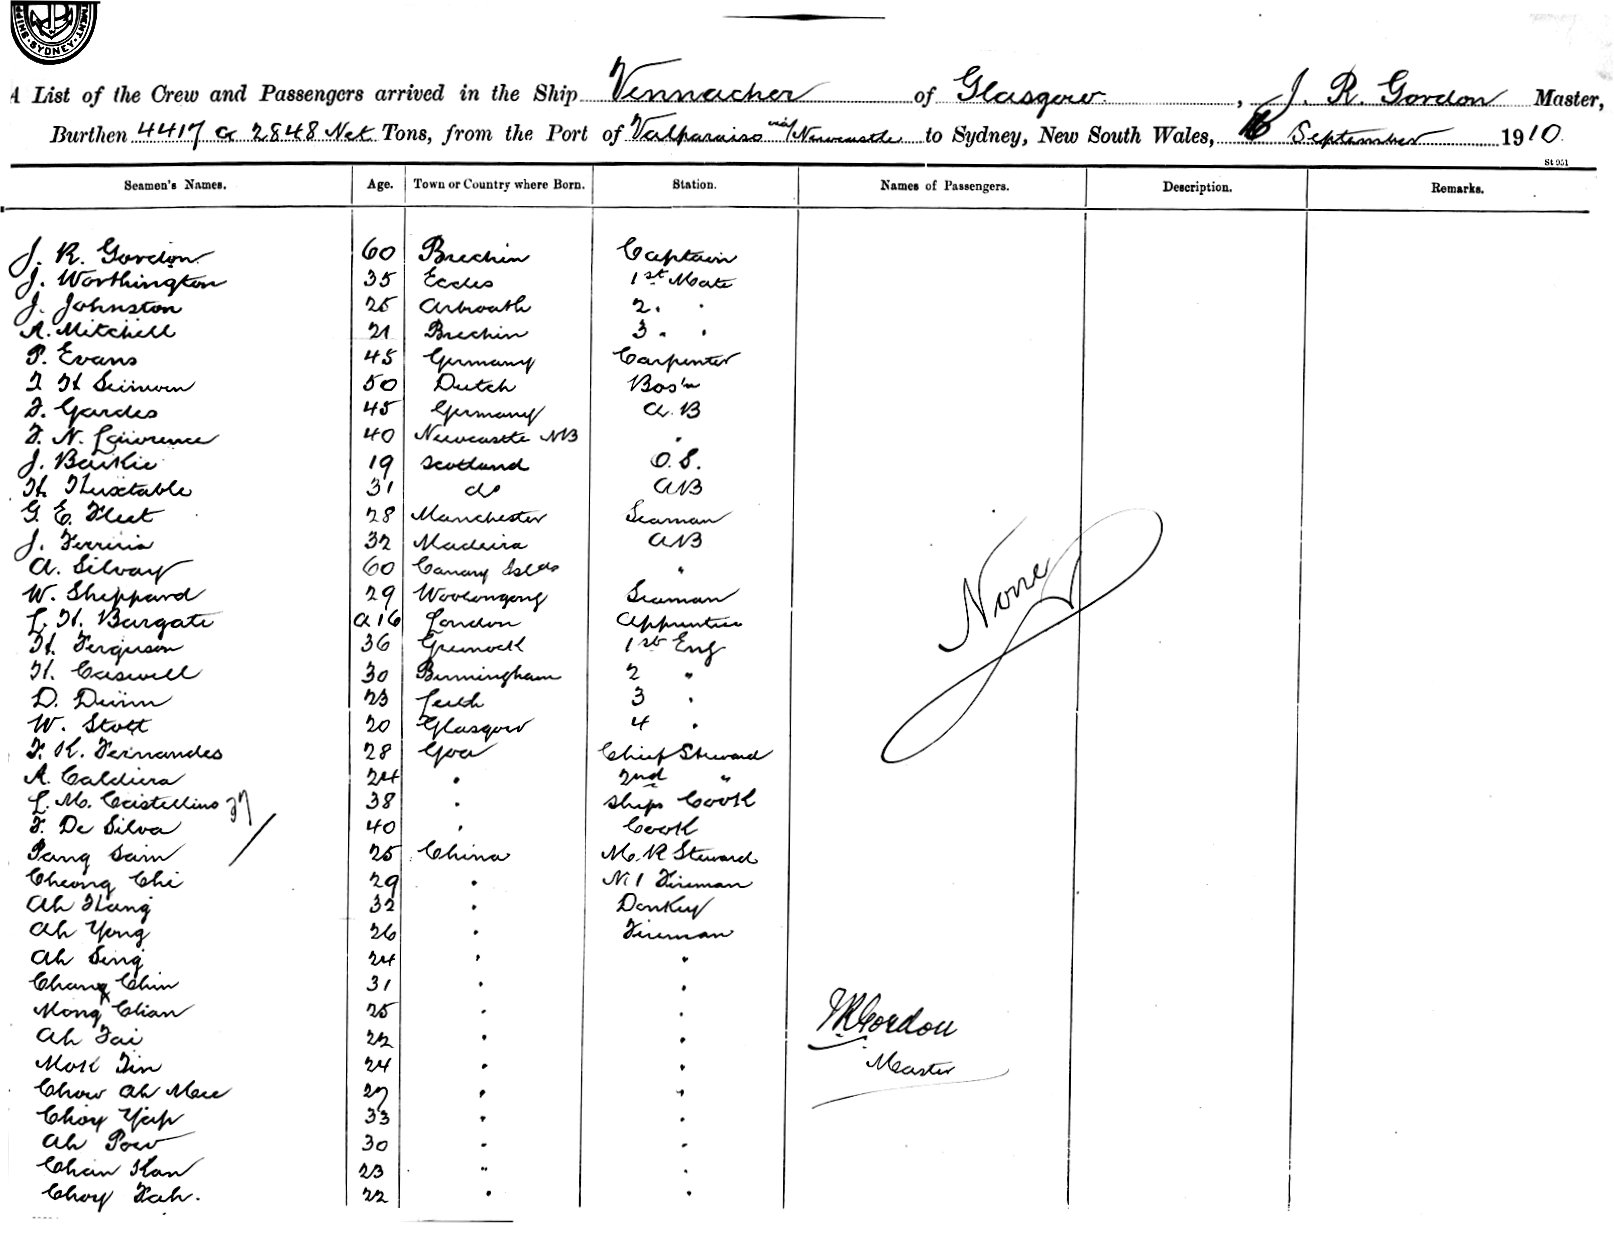 SYDNEY
A List of the Crew and Passengers arrived in the Ship Vennacher of Glasgow, J. R. Gordon Master,
Burthen 4417 G 2848 Net Tons, from the Port of Valparaiso via Newcastle to Sydney, New South Wales, 6 September 1910
St 951
Seamen's Names. Age. Town or Country where Born. Station. Names of Passengers. Description. Remarks.
J. R. Gordon 60 Brechin Captain
J. Worthington 35 Eccles 1st Mate
J. Johnston 25 Arbroath 2. "
A. Mitchell 21 Brechin 3. "
P. Evans 45 Germany Carpenter
50 Dutch Bos'n
F. Gardes 45 Germany A.B
F. N. Lawrence 40 Newcastle NB "
J. Baikie 19 Scotland O.S.
H. Huxtable 31 do AB
G. E. Fleet 28 Manchester Seaman
J. Ferriria 32 Madeira AB
A. Silvay 60 Canary Islds "
W. Sheppard 29 Woolongong Seaman
L. H. Bargate a 16 London Apprentice
H. Ferguson 36 Greenock 1st Eng
H. Caswell 30 Birmingham 2 "
D. Dunn 23 Leith 3 "
W. Stott 20 Glasgow 4 "
F. X. Fernandes 28 Goa Chief Steward
A. Caldiera 24 " 2nd "
L. M. Castellino 38 " Ships Cook
F. De Silva 40 " Cook
Pang Sam 25 China M. R Steward
Cheong Chi 29 " N. 1 Fireman
Ah Hang 32 " Donkey
Ah Yong 26 " Fireman
Ah Sing 24 " "
Chang Chin 31 " "
Mong Chan 25 " "
Ah Fai 22 " "
Mok Tin 24 " "
Chow Ah Mee 27 " "
Choy Yap 33 " "
Ah Pow 30 " "
Chan Kan 23 " "
Choy Fah. 22 " "
None
JRGordon
Master